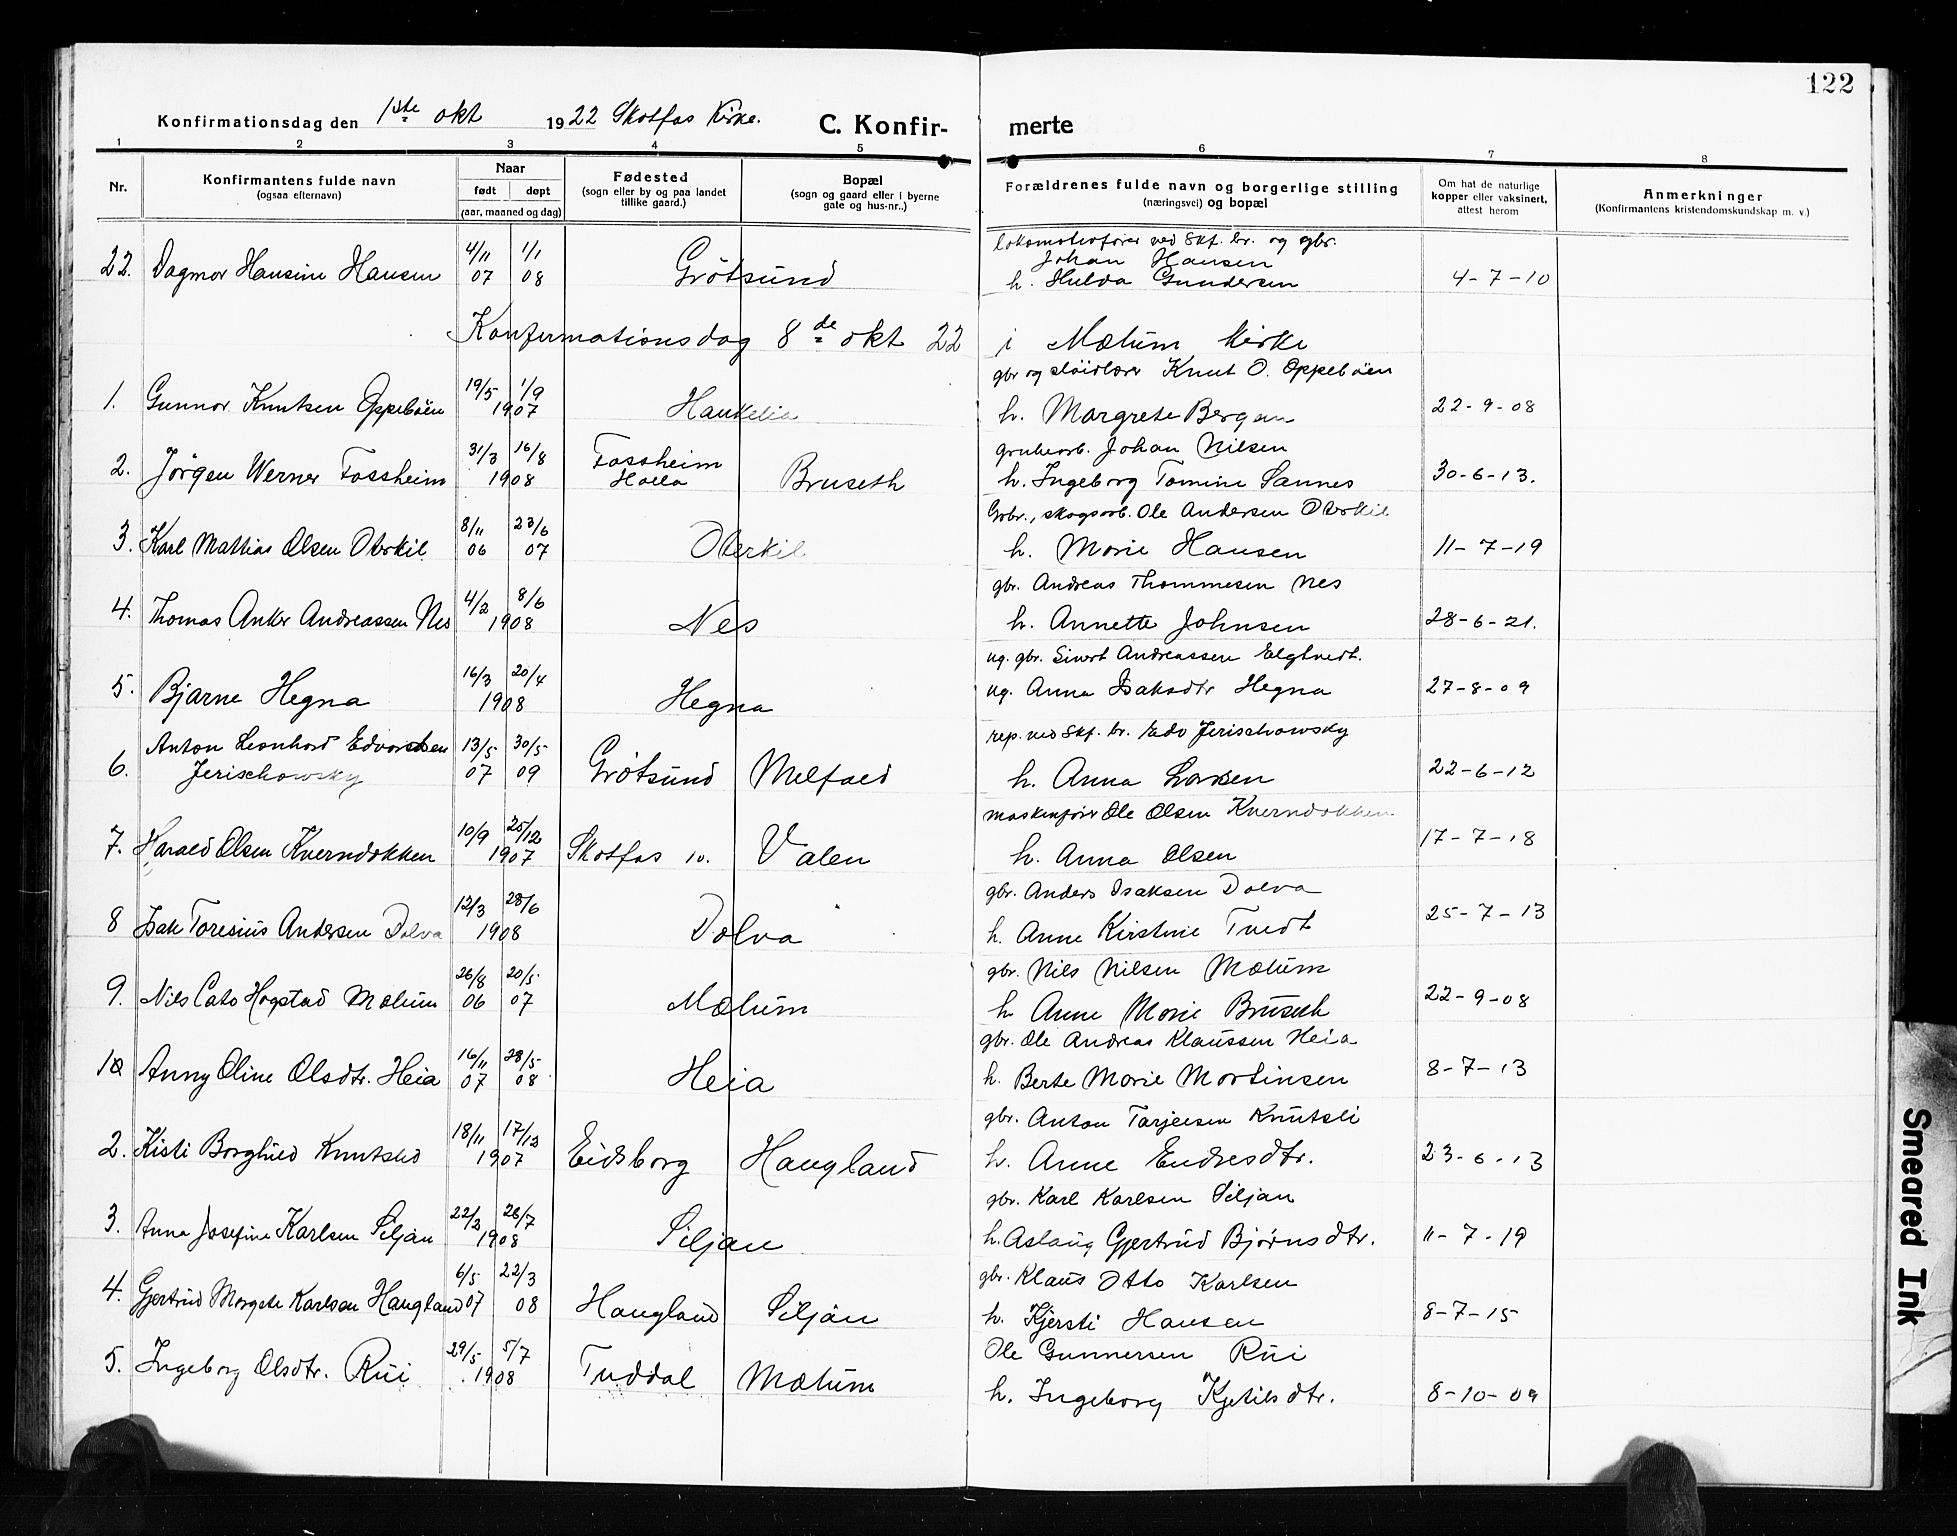 122
Konfirmationsdag den 1ste okt 1922 Skotfos Kirke. C. Konfir- merte
1 2 3 4 5 6 7 8
Nr.
Konfirmantens fulde navn
(ogsaa efternavn)
Naar
født døpt
(aar, maaned og dag)
Fødested
(sogn eller by og paa landet
tillike gaard.)
Bopæl
(sogn og gaard eller i byerne
gate og hus-nr..)
Forældrenes fulde navn og borgerlige stilling
(næringsvei) og bopæl
Om hat de naturlige
kopper eller vaksinert,
attest herom
Anmerkninger
(Konfirmantens kristendomskundskap m. v.)
lokomotivfører ved Skf. br. og gbr.
Johan Hansen
22. Dagmor Hansine Hansen 4/11 07 1/1 08 Grötsund h. Hulda Gundersen 4-7-10
Konfirmationsdag 8de okt 22 i Mælum Kirke
gbr og sløidlærer Knut O. Oppeböen
1. Gunnor Knutsen Oppeböen 19/5 1/9 1907 Haukelia h. Margrete Bergan 22-9-08
grubearb. Johan Nilsen
2. Jörgen Werner Fossheim 31/3 16/8 1908 Fossheim Holla Bruseth h. Ingeborg Tomine Sannes 30-6-13.
Gbr., skogsarb. Ole Andersen Oterkil
3. Karl Mattias Olsen Oterkil 8/11 06 23/6 07 Oterkil h. Marie Hansen 11-7-19
gbr. Andreas Thommesen Nes
4. Thomas Anker Andreassen Nes 4/2 8/6 1908 Nes h. Annette Johnsen 28-6-21.
ug. gbr. Sivert Andreassen Elgtvedt.
5. Bjarne Hegna 16/3 20/4 1908 Hegna ug. Anna Isaksdtr Hegna 27-8-09
rep. ved Skf. br. Edv Jerischowsky
6. Anton Leonhard Edvardsen Jerischowsky 13/5 07 30/5 09 Grötsund Melfald h. Anna Larsen 22-6-12
maskinfører Ole Olsen Kverndokken
7. Harald Olsen Kverndokken 10/9 25/12 1907 Skotfos 10. Valen h. Anna Olsen 17-7-18
gbr. Anders Isaksen Dolva
8 Isak Toresius Andersen Dolva 12/3 28/6 1908 Dolva h. Anne Kirstine Tvedt 25-7-13
gbr. Nils Nilsen Mælum
9. Nils Cato Hogstad Mælum 26/8 06 20/5 07 Mælum h. Anne Marie Bruseth 22-9-08
gbr. Ole Andreas Klaussen Heia
10 Anny Oline Olsdtr. Heia 16/11 07 28/5 08 Heia h. Berte Marie Mortinsen 8-7-13
gbr. Anton Tarjeisen Knutsli
2. Kisti Borghild Knutsli 18/11 17/12 1907 Eidsborg Haugland h. Anne Endresdtr. 23-6-13
gbr. Karl Karlsen Siljan
3. Anna Josefine Karlsen Siljan 22/3 26/7 1908 Siljan h. Aslaug Gjertrud Bjørnsdtr. 11-7-19
gbr. Klaus Otto Karlsen
4. Gjertrud Margete Karlsen Haugland 6/5 07 22/3 08 Haugland Siljan h. Kjersti Hansen 8-7-15
Ole Gunnersen Rui
5. Ingeborg Olsdtr. Rui 29/5 5/7 1908 Tuddal Mælum h. Ingeborg Kjetilsdtr. 8-10-09
Smeared Ink